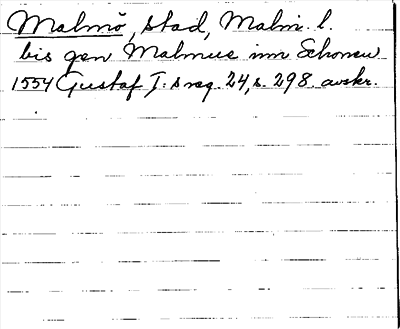 Malmö, stad, Malm. l.
bis gen Malmue inn Schonen
1554 Gustaf I:s reg. 24, s. 298 avskr.